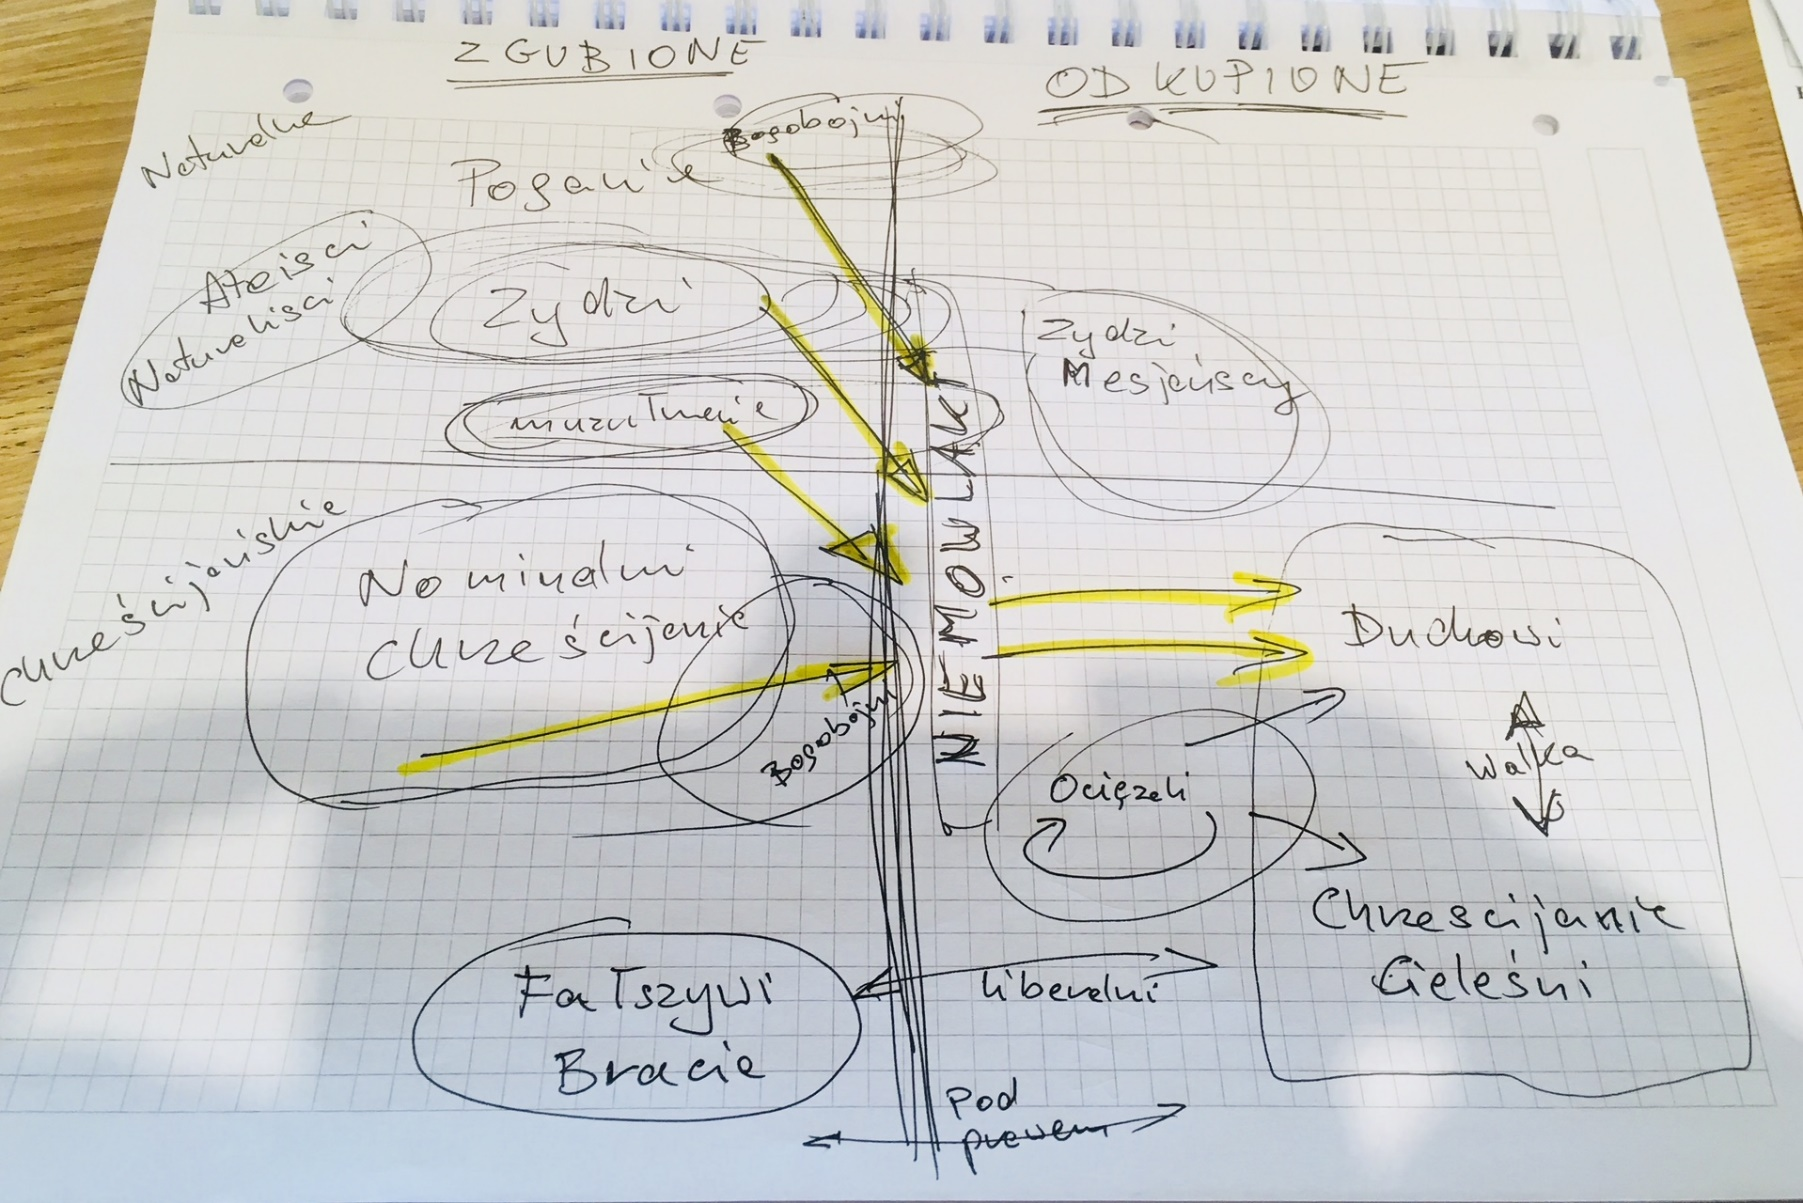 ZGUBIONE
ODKUPIONE
Naturalne
Bogobojni
Poganie
Ateisci
Naturalisci
Zydzi
Zydzi
Mesjańscy
muzułmanie
NIEMOWLAKI
Chrześcijańskie
Nominalni
Chrześcijanie
Bogobojni
Duchowi
Walka
Ociężeli
Chrzescijanie
Cieleśni
Fałszywi
Bracie
liberalni
Pod
prawem